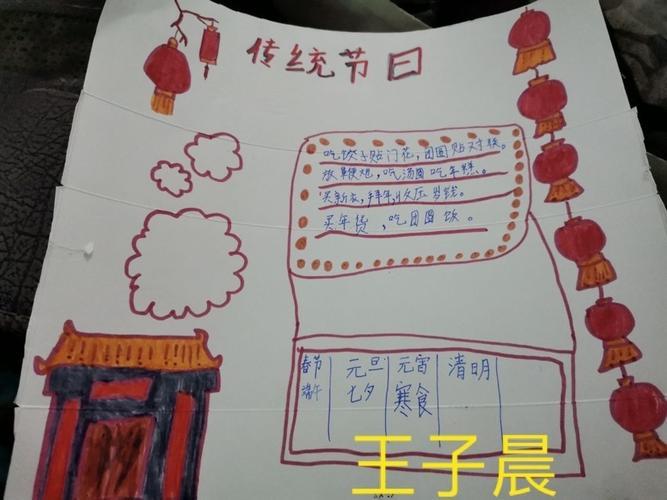 传统节日
吃饺子贴门花,团圆贴对联。
放鞭炮,吃汤圆吃年糕。
买新衣,拜年收压岁钱。
买年货,吃团圆饭。
春节 元旦 元宵 清明
端午 七夕 寒食
王子晨